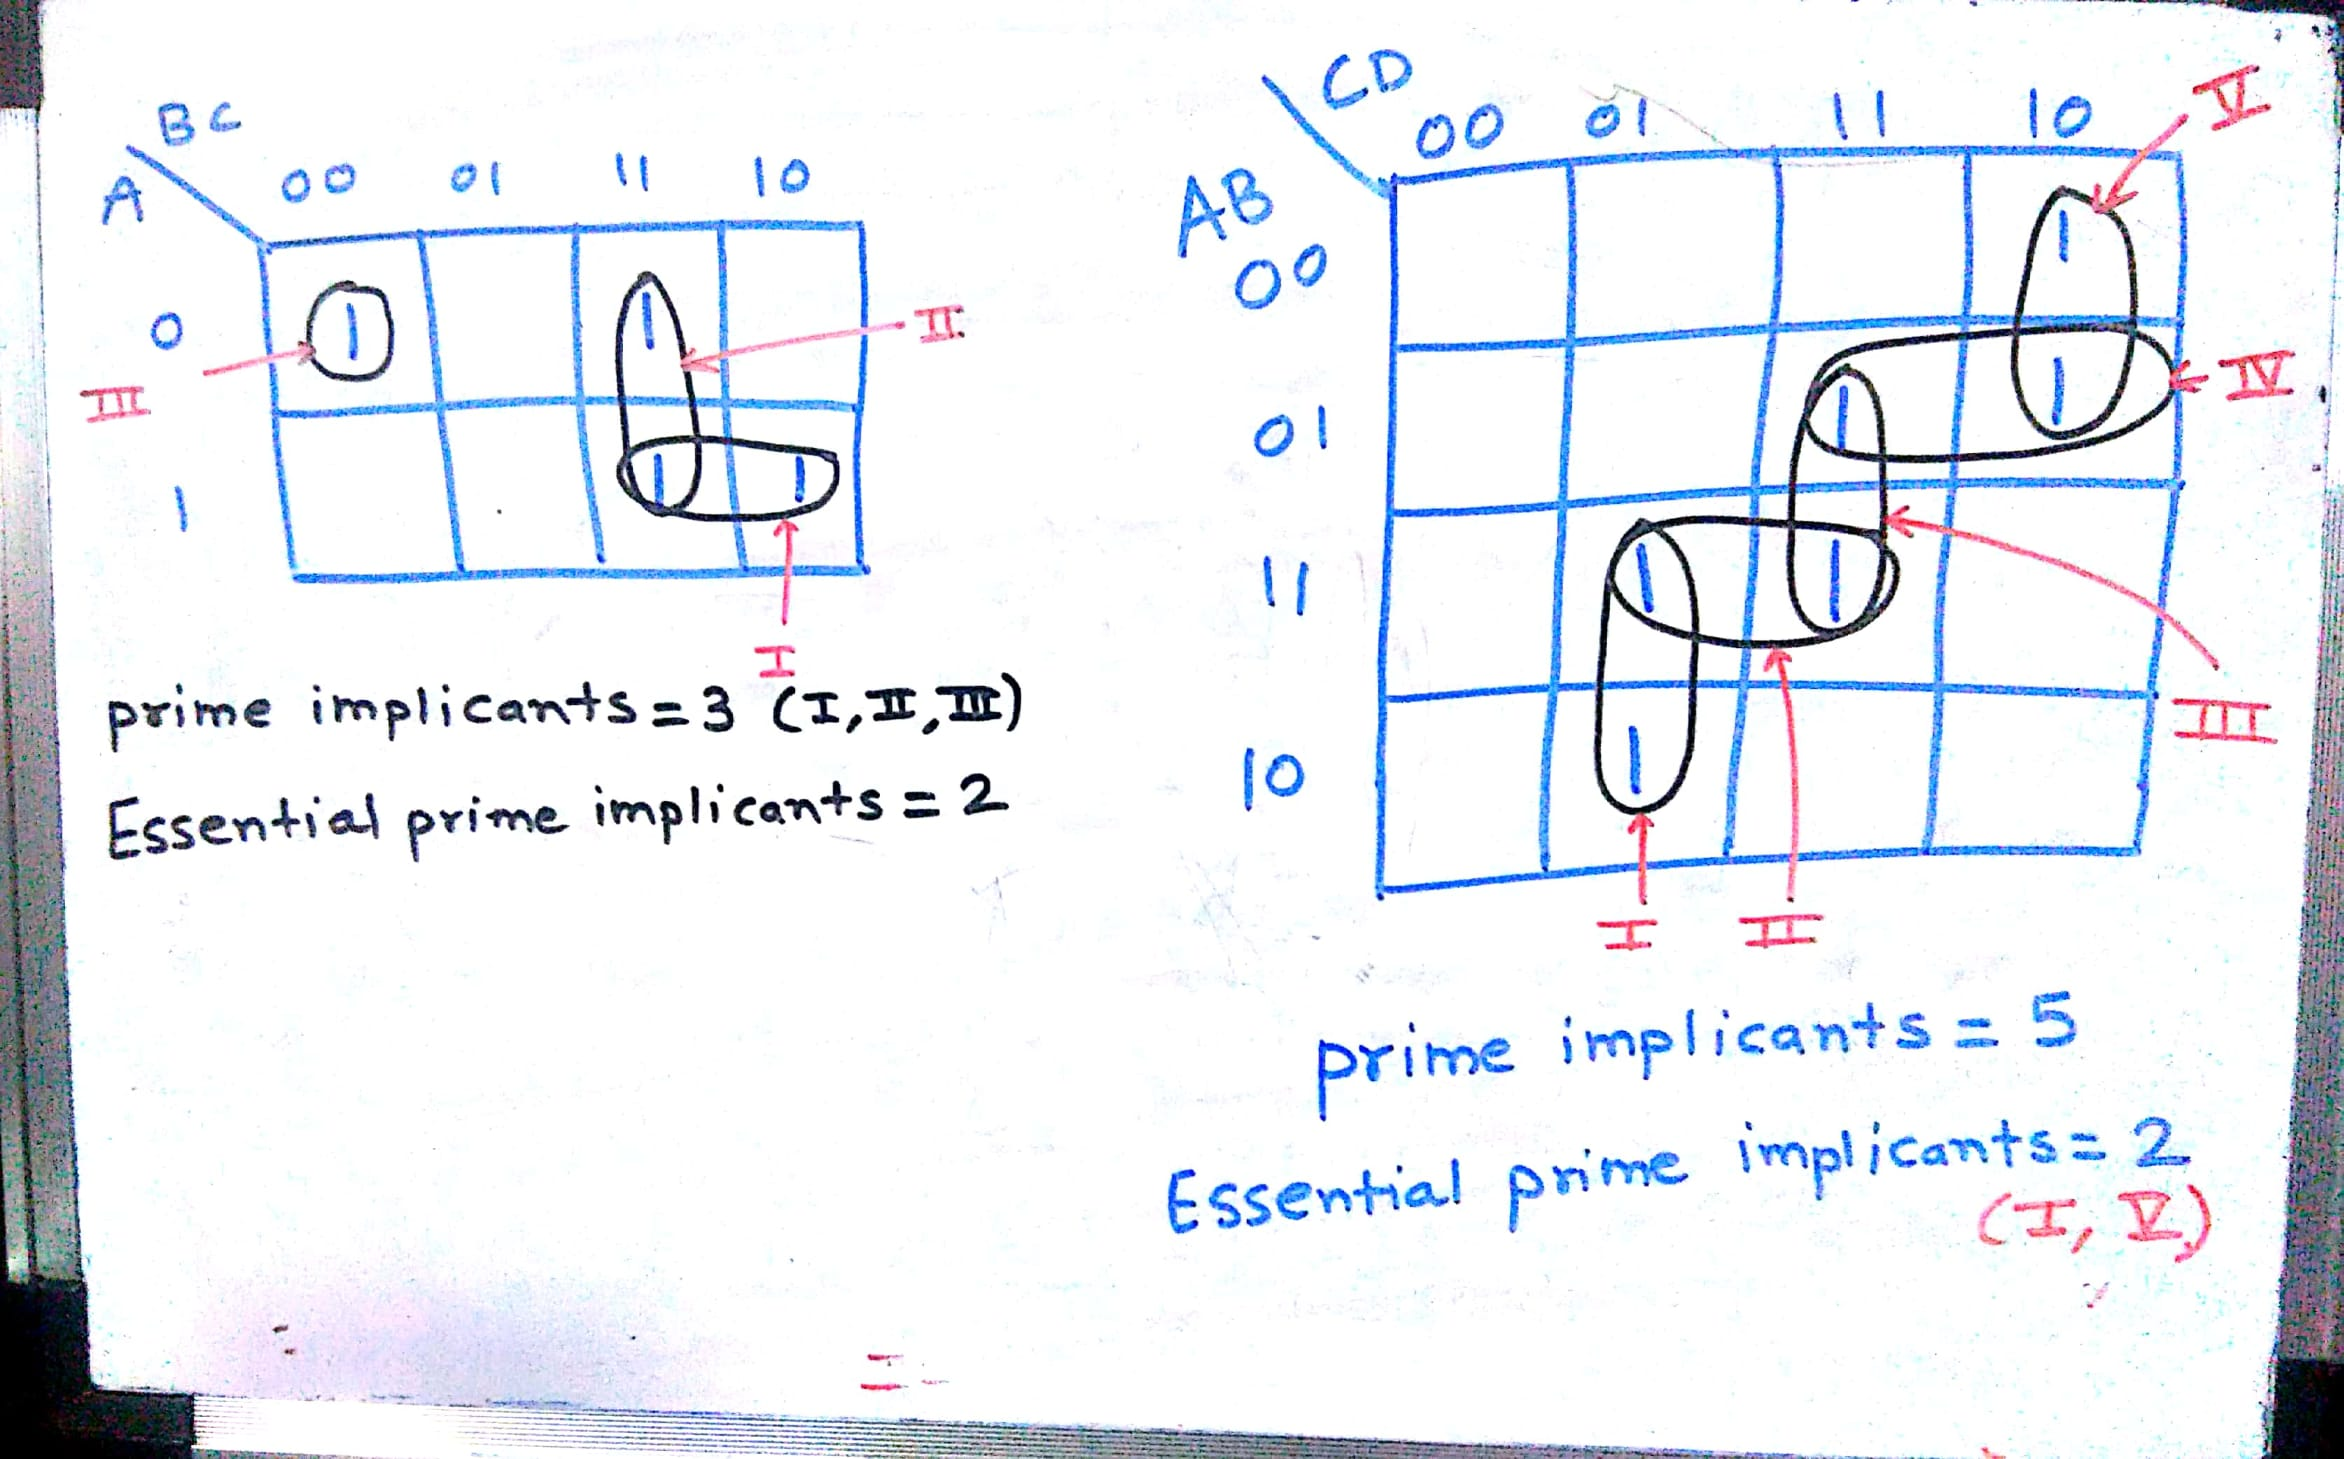 BC
A 00 01 11 10
0 1 1
III II
1 1 1
I
prime implicants = 3 (I, II, III)
Essential prime implicants = 2
CD
AB 00 01 11 10 V
00 1
01 1 1 IV
11 1 1
III
10 1
I II
prime implicants = 5
Essential prime implicants = 2
(I, V)